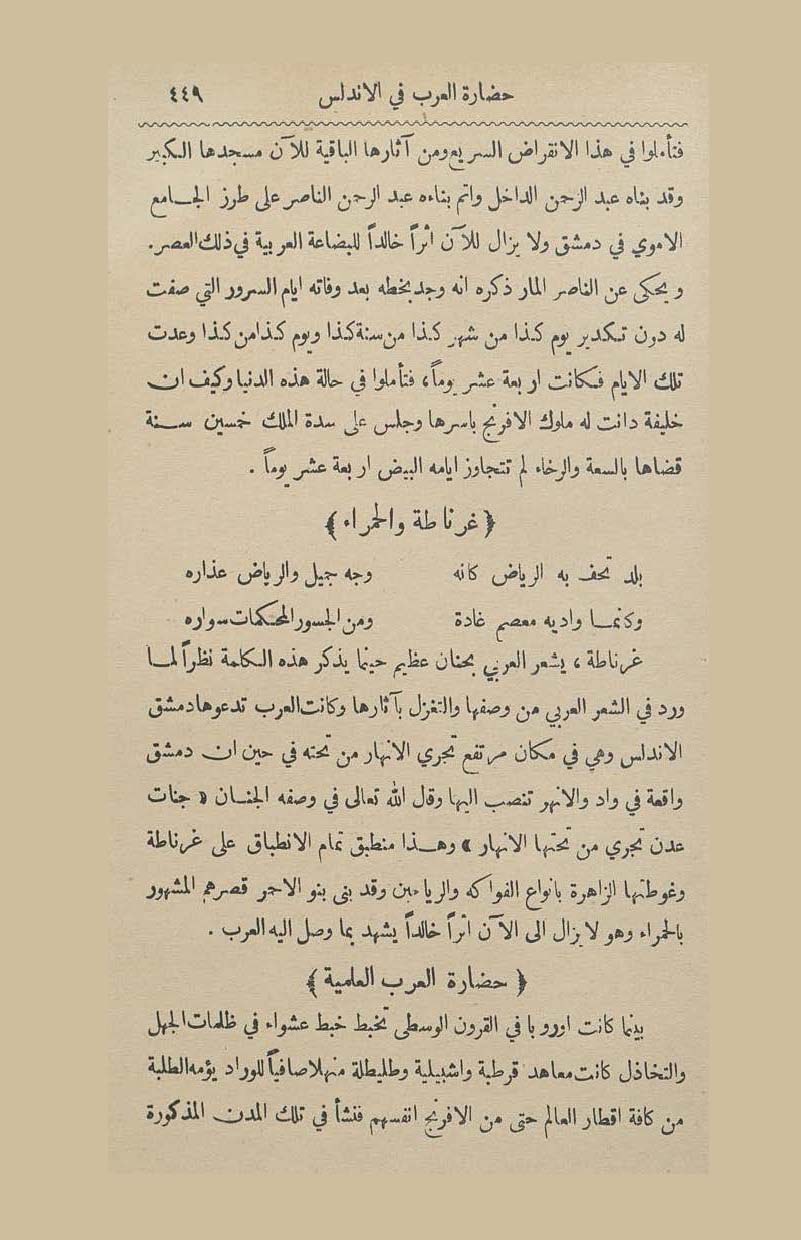 حضارة العرب في الاندلس ٤٤٩
فتأملوا في هذا الانقراض السريع ومن آثارها الباقية للآن مسجدها الكبير
وقد بناه عبد الرحمن الداخل واتم بناءه عبد الرحمن الناصر على طرز الجامع
الاموي في دمشق ولا يزال للآن أثراً خالداً للبضاعة العربية في ذلك العصر.
ويحكى عن الناصر المار ذكره انه وجد بخطه بعد وفاته ايام السرور التي صفت
له دون تكدير يوم كذا من شهر كذا من سنة كذا ويوم كذا من كذا وعدت
تلك الايام فكانت اربعة عشر يوماً، فتأملوا في حالة هذه الدنيا وكيف ان
خليفة دانت له ملوك الافرنج باسرها وجلس على سدة الملك خمسين سنة
قضاها بالسعة والرخاء لم تتجاوز ايامه البيض اربعة عشر يوماً.
﴿ غرناطة والحمراء ﴾
بلد تحف به الرياض كانه وجه جميل والرياض عذاره
وكانما واديه معصم غادة ومن الجسور المحكمات سواره
غرناطة، يشعر العربي بحنان عظيم حينما يذكر هذه الكلمة نظراً لما
ورد في الشعر العربي من وصفها والتغزل بآثارها وكانت العرب تدعوها دمشق
الاندلس وهي في مكان مرتفع تجري الانهار من تحته في حين ان دمشق
واقعة في واد والانهر تنصب اليها وقال الله تعالى في وصفه الجنان « جنات
عدن تجري من تحتها الانهار » وهذا منطبق تمام الانطباق على غرناطة
وغوطتها الزاهرة بانواع الفواكه والرياحين وقد بنى بنو الاحمر قصرهم المشهور
بالحمراء وهو لا يزال الى الآن أثراً خالداً يشهد بما وصل اليه العرب.
﴿ حضارة العرب العلمية ﴾
بينما كانت اوروبا في القرون الوسطى تخبط خبط عشواء في ظلمات الجهل
والتخاذل كانت معاهد قرطبة واشبيلية وطليطلة منهلا صافياً للوراد يؤمه الطلبة
من كافة اقطار العالم حتى من الافرنج انفسهم فنشأ في تلك المدن المذكورة